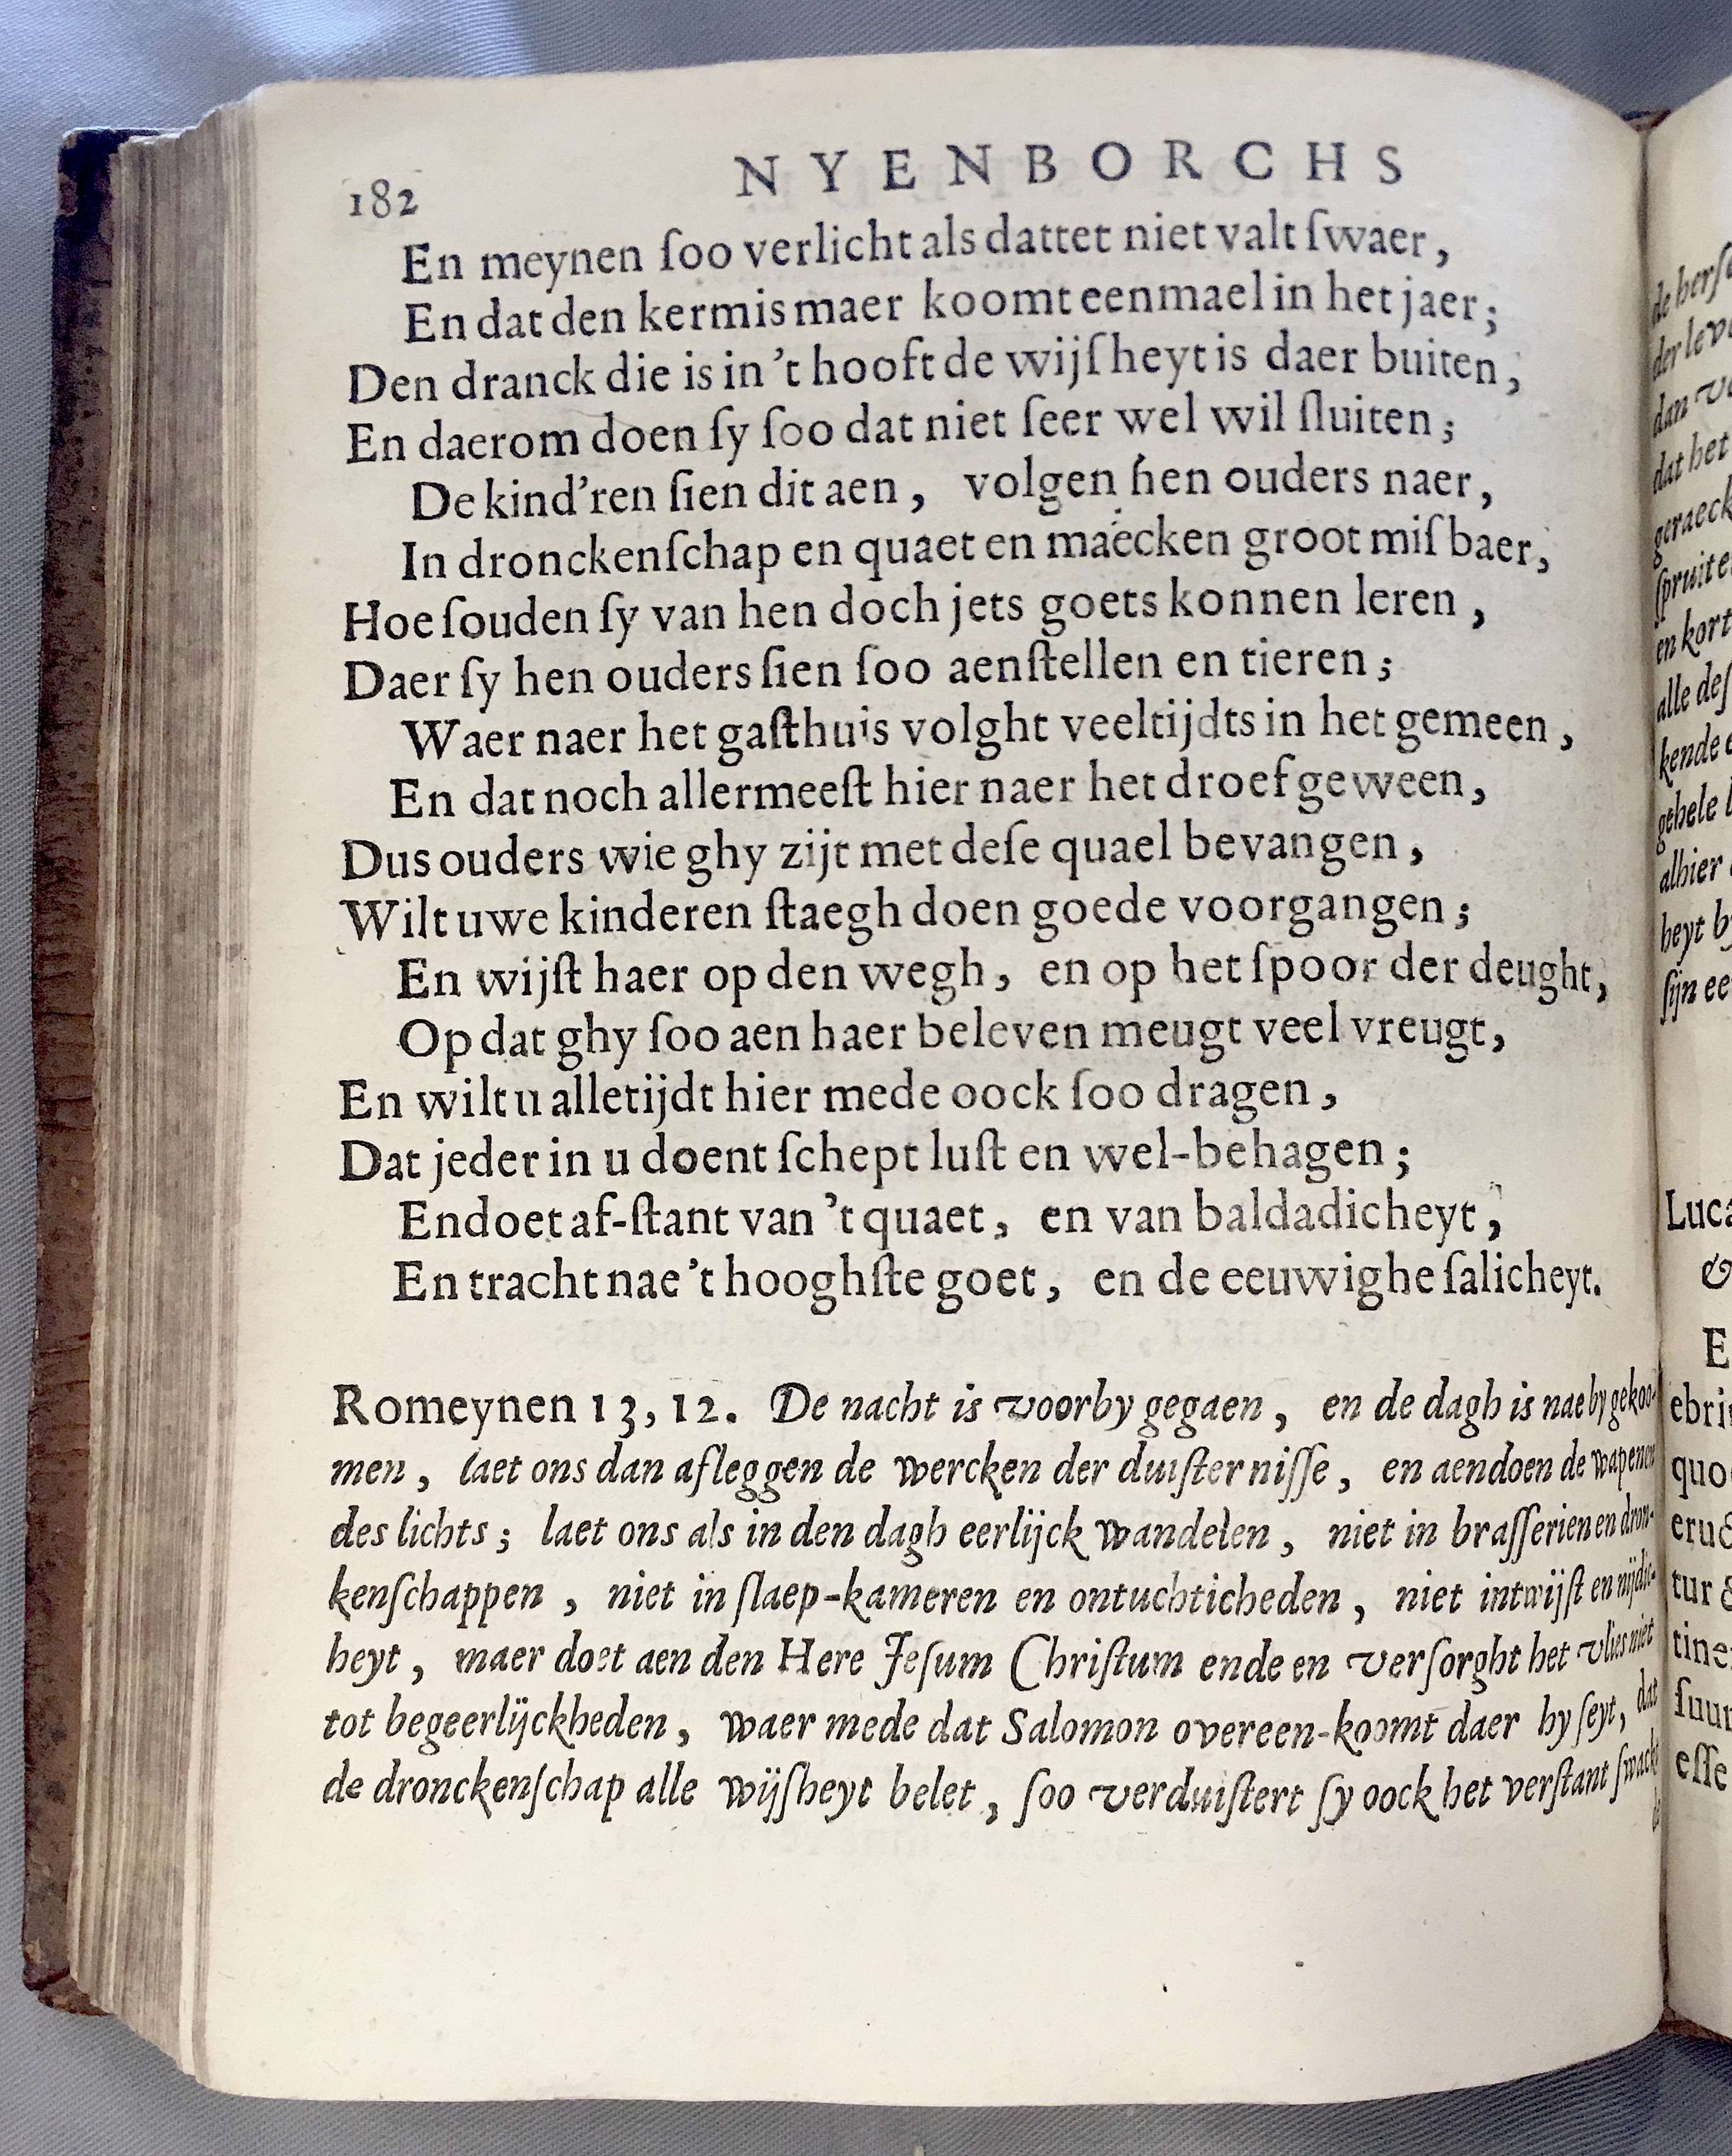 182 NYENBORCHS
En meynen ſoo verlicht als dattet niet valt ſwaer,
En dat den kermis maer koomt eenmael in het jaer;
Den dranck die is in 't hooft de wijſheyt is daer buiten,
En daerom doen ſy ſoo dat niet ſeer wel wil ſluiten;
De kind'ren ſien dit aen, volgen hen ouders naer,
In dronckenſchap en quaet en maecken groot miſbaer,
Hoe ſouden ſy van hen doch jets goets konnen leren,
Daer ſy hen ouders ſien ſoo aenſtellen en tieren;
Waer naer het gaſthuis volght veeltijdts in het gemeen,
En dat noch allermeeſt hier naer het droef geween,
Dus ouders wie ghy zijt met deſe quael bevangen,
Wilt uwe kinderen ſtaegh doen goede voorgangen;
En wijſt haer op den wegh, en op het ſpoor der deught,
Op dat ghy ſoo aen haer beleven meugt veel vreugt,
En wilt u alletijdt hier mede oock ſoo dragen,
Dat jeder in u doent ſchept luſt en wel-behagen;
En doet af-ſtant van 't quaet, en van baldadicheyt,
En tracht nae 't hooghſte goet, en de eeuwighe ſalicheyt.
Romeynen 13, 12. De nacht is voorby gegaen, en de dagh is nae by gekoo-
men, laet ons dan afleggen de wercken der duiſterniſſe, en aendoen de wapenen
des lichts; laet ons als in den dagh eerlijck wandelen, niet in braſſerien en dron-
kenſchappen, niet in ſlaep-kameren en ontuchticheden, niet in twijſt en nijdic-
heyt, maer doet aen den Here Jeſum Chriſtum ende en verſorght het vlies niet
tot begeerlijckheden, waer mede dat Salomon overeen-koomt daer hy ſeyt, dat
de dronckenſchap alle wijſheyt belet, ſoo verduiſtert ſy oock het verſtant ſwackt
de herſ
der lev
dan
dat het
geraeck
ſpruite
en kort
alle deſ
kende
gehele
alhier
heyt
ſijn ee
Luca
&
E
ebri
quo
eru
tur
tine
ſuu
eſſe